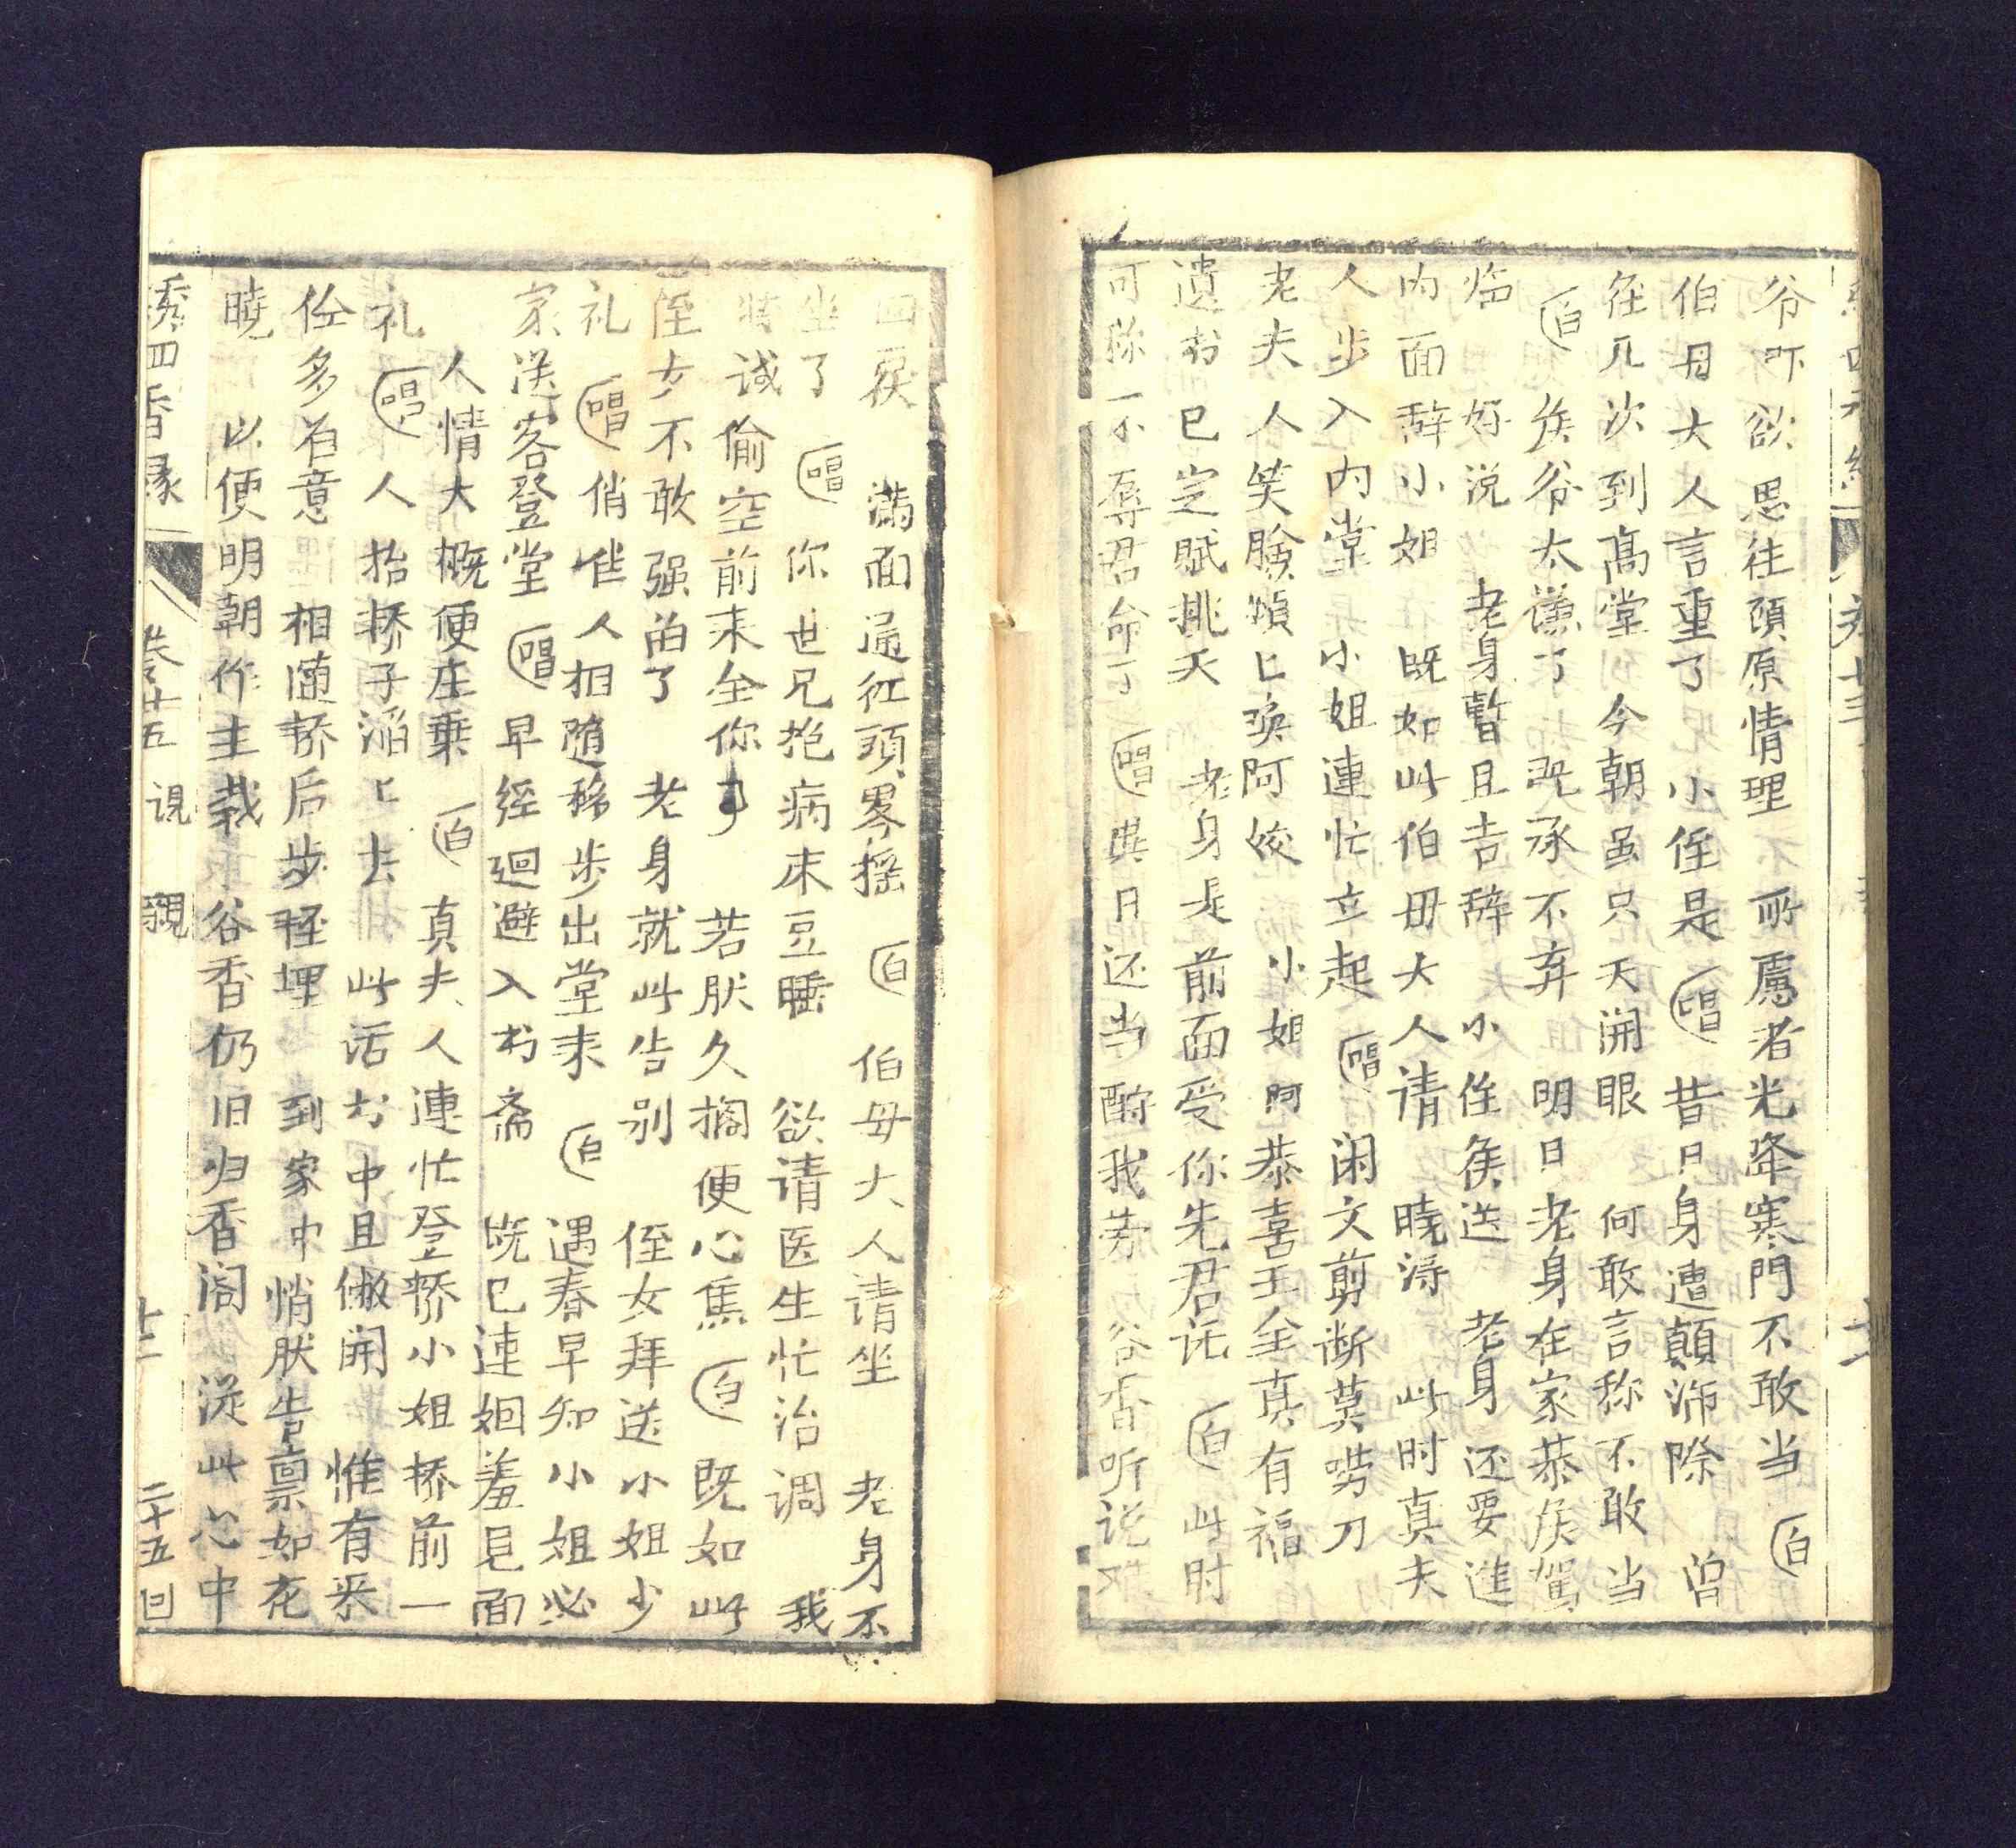 爷吓　欲思往頭原情理　所慮者光降寒門不敢当　白
伯母大人言重了　小侄是　唱　昔日身遭顛沛際　曽
徃几次到髙堂　今朝虽只天開眼　何敢言称不敢当
白　矦爷太谦了　既承不弃　明日老身在家恭矦駕
临　好说　老身暫且告辞　小侄矦送　老身还要進
内面辞小姐　既如此伯母大人请　曉淂　此时真夫
人步入内堂　小姐連忙立起　唱　闲文剪断莫唠刀
老夫人笑臉　唤阿　小姐阿恭喜　全真有福
遗书已　賦挑天　老身是前面受你先君讬　白　此时
可称不辱君命了　唱　日还当酹我劳　谷香听说
满面通红頭畧摇　白　伯母大人请坐　老身不
坐了　唱　你世兄抱病床　睡　欲请医生忙治调　我
诚偷空前来全你　若肰久搁便心焦　白　既如此
侄女不敢强留了　老身就此告别　侄女拜送小姐少
礼　唱　俏　人相随移步出堂来　白　遇春早知小姐必
家送客登堂　唱　早经迴避入书斋　既已連姻羞見面
人情大概便庄乗　白　真夫人連忙登轎小姐轎前一
礼　唱　人抬轎子滔匕去　此活　中且　開　惟有
侄多有意　相随轎后步　埋　到家中悄肰告禀如花
曉　以便明朝作主裁　谷香仍旧归香阁　従此心中
秀四香緣　卷十五　説親　十二　二十五回